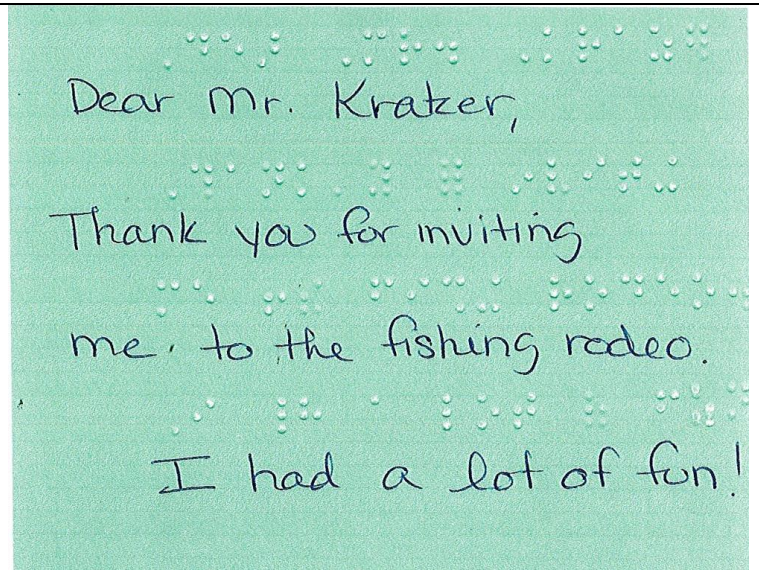 Dear Mr. Kratzer,
Thank you for inviting
me to the fishing rodeo.
I had a lot of fun!